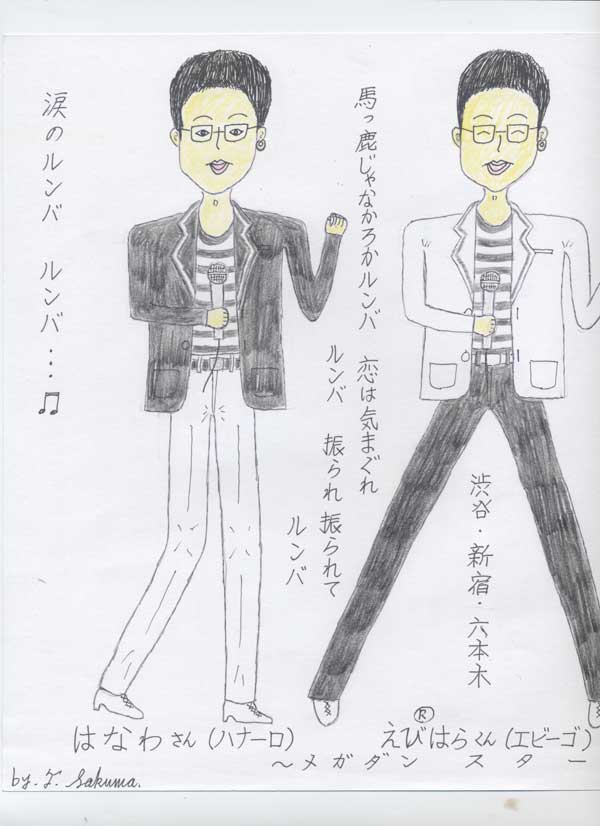 馬っ鹿じゃなかろかルンバ
恋は気まぐれ
ルンバ
振られ振られて
ルンバ
涙のルンバ ルンバ…♫
渋谷・新宿・六本木
はなわさん(ハナーロ)
®
えびはらくん(エビーゴ)
〜メガダンスター
by. T. Sakuma.